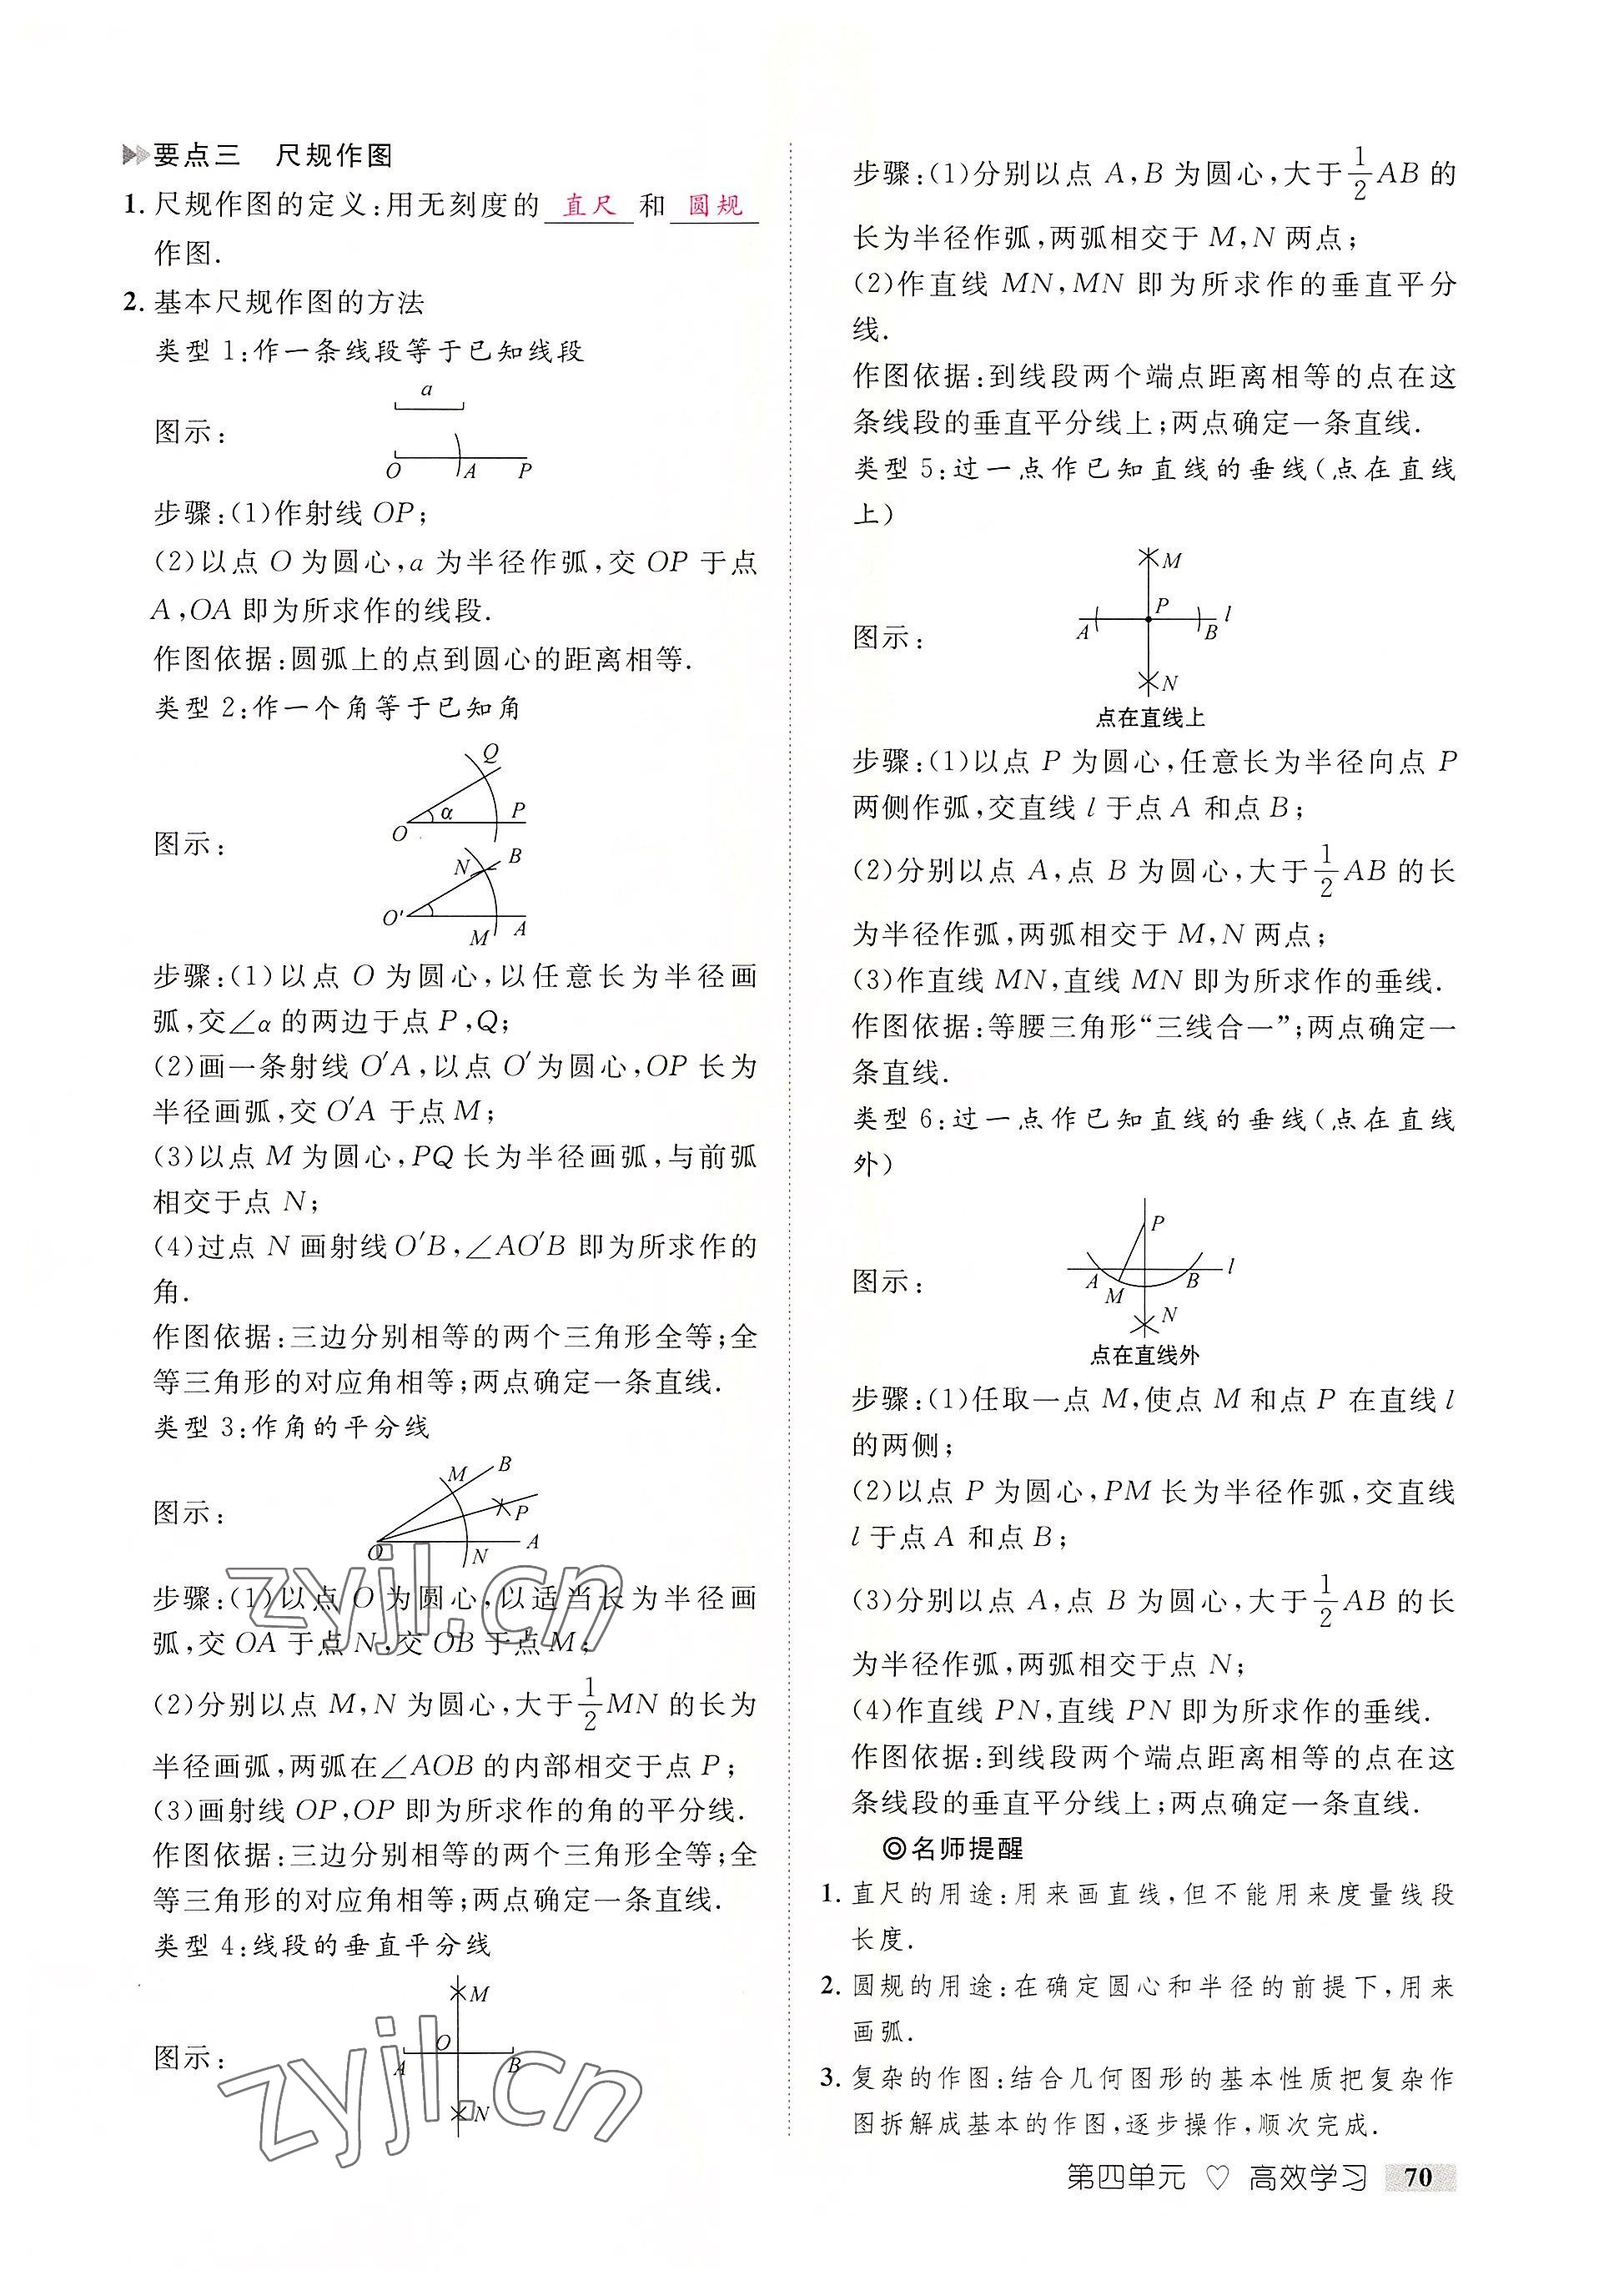 要点三 尺规作图
1. 尺规作图的定义:用无刻度的 直尺 和 圆规
作图.
2. 基本尺规作图的方法
类型1:作一条线段等于已知线段
a
图示:
O A P
步骤:(1)作射线OP;
(2)以点O为圆心,a为半径作弧,交OP于点
A,OA即为所求作的线段.
作图依据:圆弧上的点到圆心的距离相等.
类型2:作一个角等于已知角
Q
α P
O
图示:
N B
O′
M A
步骤:(1)以点O为圆心,以任意长为半径画
弧,交∠α的两边于点P,Q;
(2)画一条射线O′A,以点O′为圆心,OP长为
半径画弧,交O′A于点M;
(3)以点M为圆心,PQ长为半径画弧,与前弧
相交于点N;
(4)过点N画射线O′B,∠AO′B即为所求作的
角.
作图依据:三边分别相等的两个三角形全等;全
等三角形的对应角相等;两点确定一条直线.
类型3:作角的平分线
M B
图示:
P
O N A
步骤:(1)以点O为圆心,以适当长为半径画
弧,交OA于点N,交OB于点M;
(2)分别以点M,N为圆心,大于1/2MN的长为
半径画弧,两弧在∠AOB的内部相交于点P;
(3)画射线OP,OP即为所求作的角的平分线.
作图依据:三边分别相等的两个三角形全等;全
等三角形的对应角相等;两点确定一条直线.
类型4:线段的垂直平分线
M
O
图示:
A B
N
zyjl.cn
zyjl.cn
步骤:(1)分别以点A,B为圆心,大于1/2AB的
长为半径作弧,两弧相交于M,N两点;
(2)作直线MN,MN即为所求作的垂直平分
线.
作图依据:到线段两个端点距离相等的点在这
条线段的垂直平分线上;两点确定一条直线.
类型5:过一点作已知直线的垂线(点在直线
上)
M
P l
A B
图示:
N
点在直线上
步骤:(1)以点P为圆心,任意长为半径向点P
两侧作弧,交直线l于点A和点B;
(2)分别以点A,点B为圆心,大于1/2AB的长
为半径作弧,两弧相交于M,N两点;
(3)作直线MN,直线MN即为所求作的垂线.
作图依据:等腰三角形“三线合一”;两点确定一
条直线.
类型6:过一点作已知直线的垂线(点在直线
外)
P
l
图示:
A M B
N
点在直线外
步骤:(1)任取一点M,使点M和点P在直线l
的两侧;
(2)以点P为圆心,PM长为半径作弧,交直线
l于点A和点B;
(3)分别以点A,点B为圆心,大于1/2AB的长
为半径作弧,两弧相交于点N;
(4)作直线PN,直线PN即为所求作的垂线.
作图依据:到线段两个端点距离相等的点在这
条线段的垂直平分线上;两点确定一条直线.
◎名师提醒
1. 直尺的用途:用来画直线,但不能用来度量线段
长度.
2. 圆规的用途:在确定圆心和半径的前提下,用来
画弧.
3. 复杂的作图:结合几何图形的基本性质把复杂作
图拆解成基本的作图,逐步操作,顺次完成.
第四单元 ♡ 高效学习 70